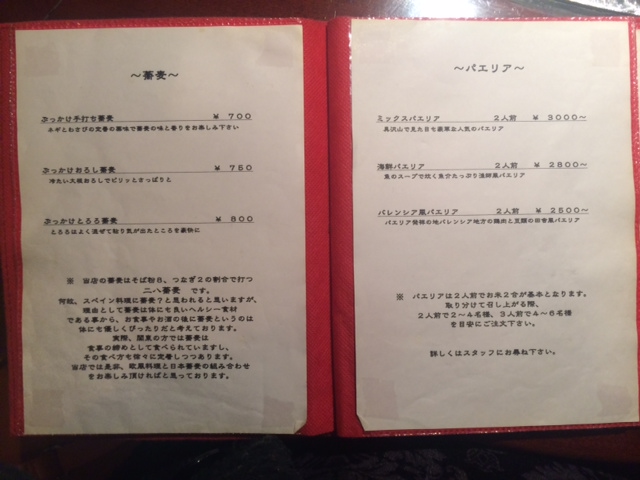 ～蕎麦～
ぶっかけ手打ち蕎麦 ¥ 700
ネギとわさびの定番の薬味で蕎麦の味と香りをお楽しみ下さい
ぶっかけおろし蕎麦 ¥ 750
冷たい大根おろしでピリッとさっぱりと
ぶっかけとろろ蕎麦 ¥ 800
とろろはよく混ぜて粘り気が出たところを豪快に
※ 当店の蕎麦はそば粉8、つなぎ2の割合で打つ
二八蕎麦 です。
何故、スペイン料理に蕎麦?と思われると思いますが、
理由として蕎麦は体にも良いヘルシー食材
である事から、お食事やお酒の後に蕎麦というのは
体にも優しくぴったりだと考えております。
実際、関東の方では蕎麦は
食事の締めとして食べられていますし、
その食べ方も徐々に定着しつつあります。
当店では是非、欧風料理と日本蕎麦の組み合わせ
をお楽しみ頂ければと思っております。
～パエリア～
ミックスパエリア 2人前 ¥ 3000～
具沢山で見た目も豪華な人気のパエリア
海鮮パエリア 2人前 ¥ 2800～
魚のスープで炊く魚介たっぷり漁師風パエリア
バレンシア風パエリア 2人前 ¥ 2500～
パエリア発祥の地バレンシア地方の鶏肉と豆類の田舎風パエリア
※ パエリアは2人前でお米2合が基本となります。
取り分けて召し上がる際、
2人前で2～4名様、3人前で4～6名様
を目安にご注文下さい。
詳しくはスタッフにお尋ね下さい。